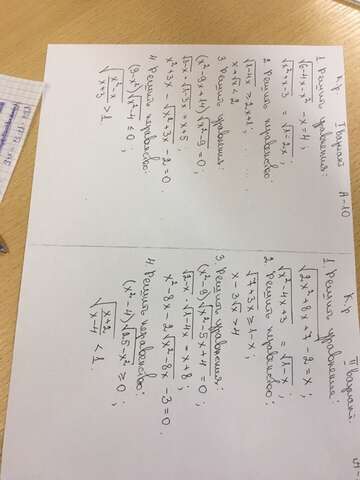 К.р.
I вариант А-10
1 Решить уравнения:
√(6-4x-x²) - x = 4;
√(x²+x-3) = √(1-2x);
2 Решить неравенство:
√(1-4x) ≥ 2x+1;
x+√x < 2.
3. Решить уравнения:
(x²-9x+14)√(x²-9) = 0;
√(3-x) · √(1-3x) = x+5
x²+3x - √(x²+3x) - 2 = 0.
4 Решить неравенство:
(9-x²)√(x²-4) ≤ 0;
√((x²-x)/(x+3)) > 1
К.р.
II вариант.
1 Решить уравнения:
√(2x²+8x+7) - 2 = x;
√(x²-4x+3) = √(1-x);
2 Решить неравенство:
√(7+3x) ≥ 1-x;
x-3√x > 4.
3. Решить уравнения:
(x²-9)√(x²-5x+4) = 0;
√(2-x) · √(1-4x) = x+8;
x²-8x-2√(x²-8x) - 3 = 0.
4 Решить неравенство:
(x²-4)√(25-x²) ≥ 0;
√((x+2)/(x-4)) < 1.